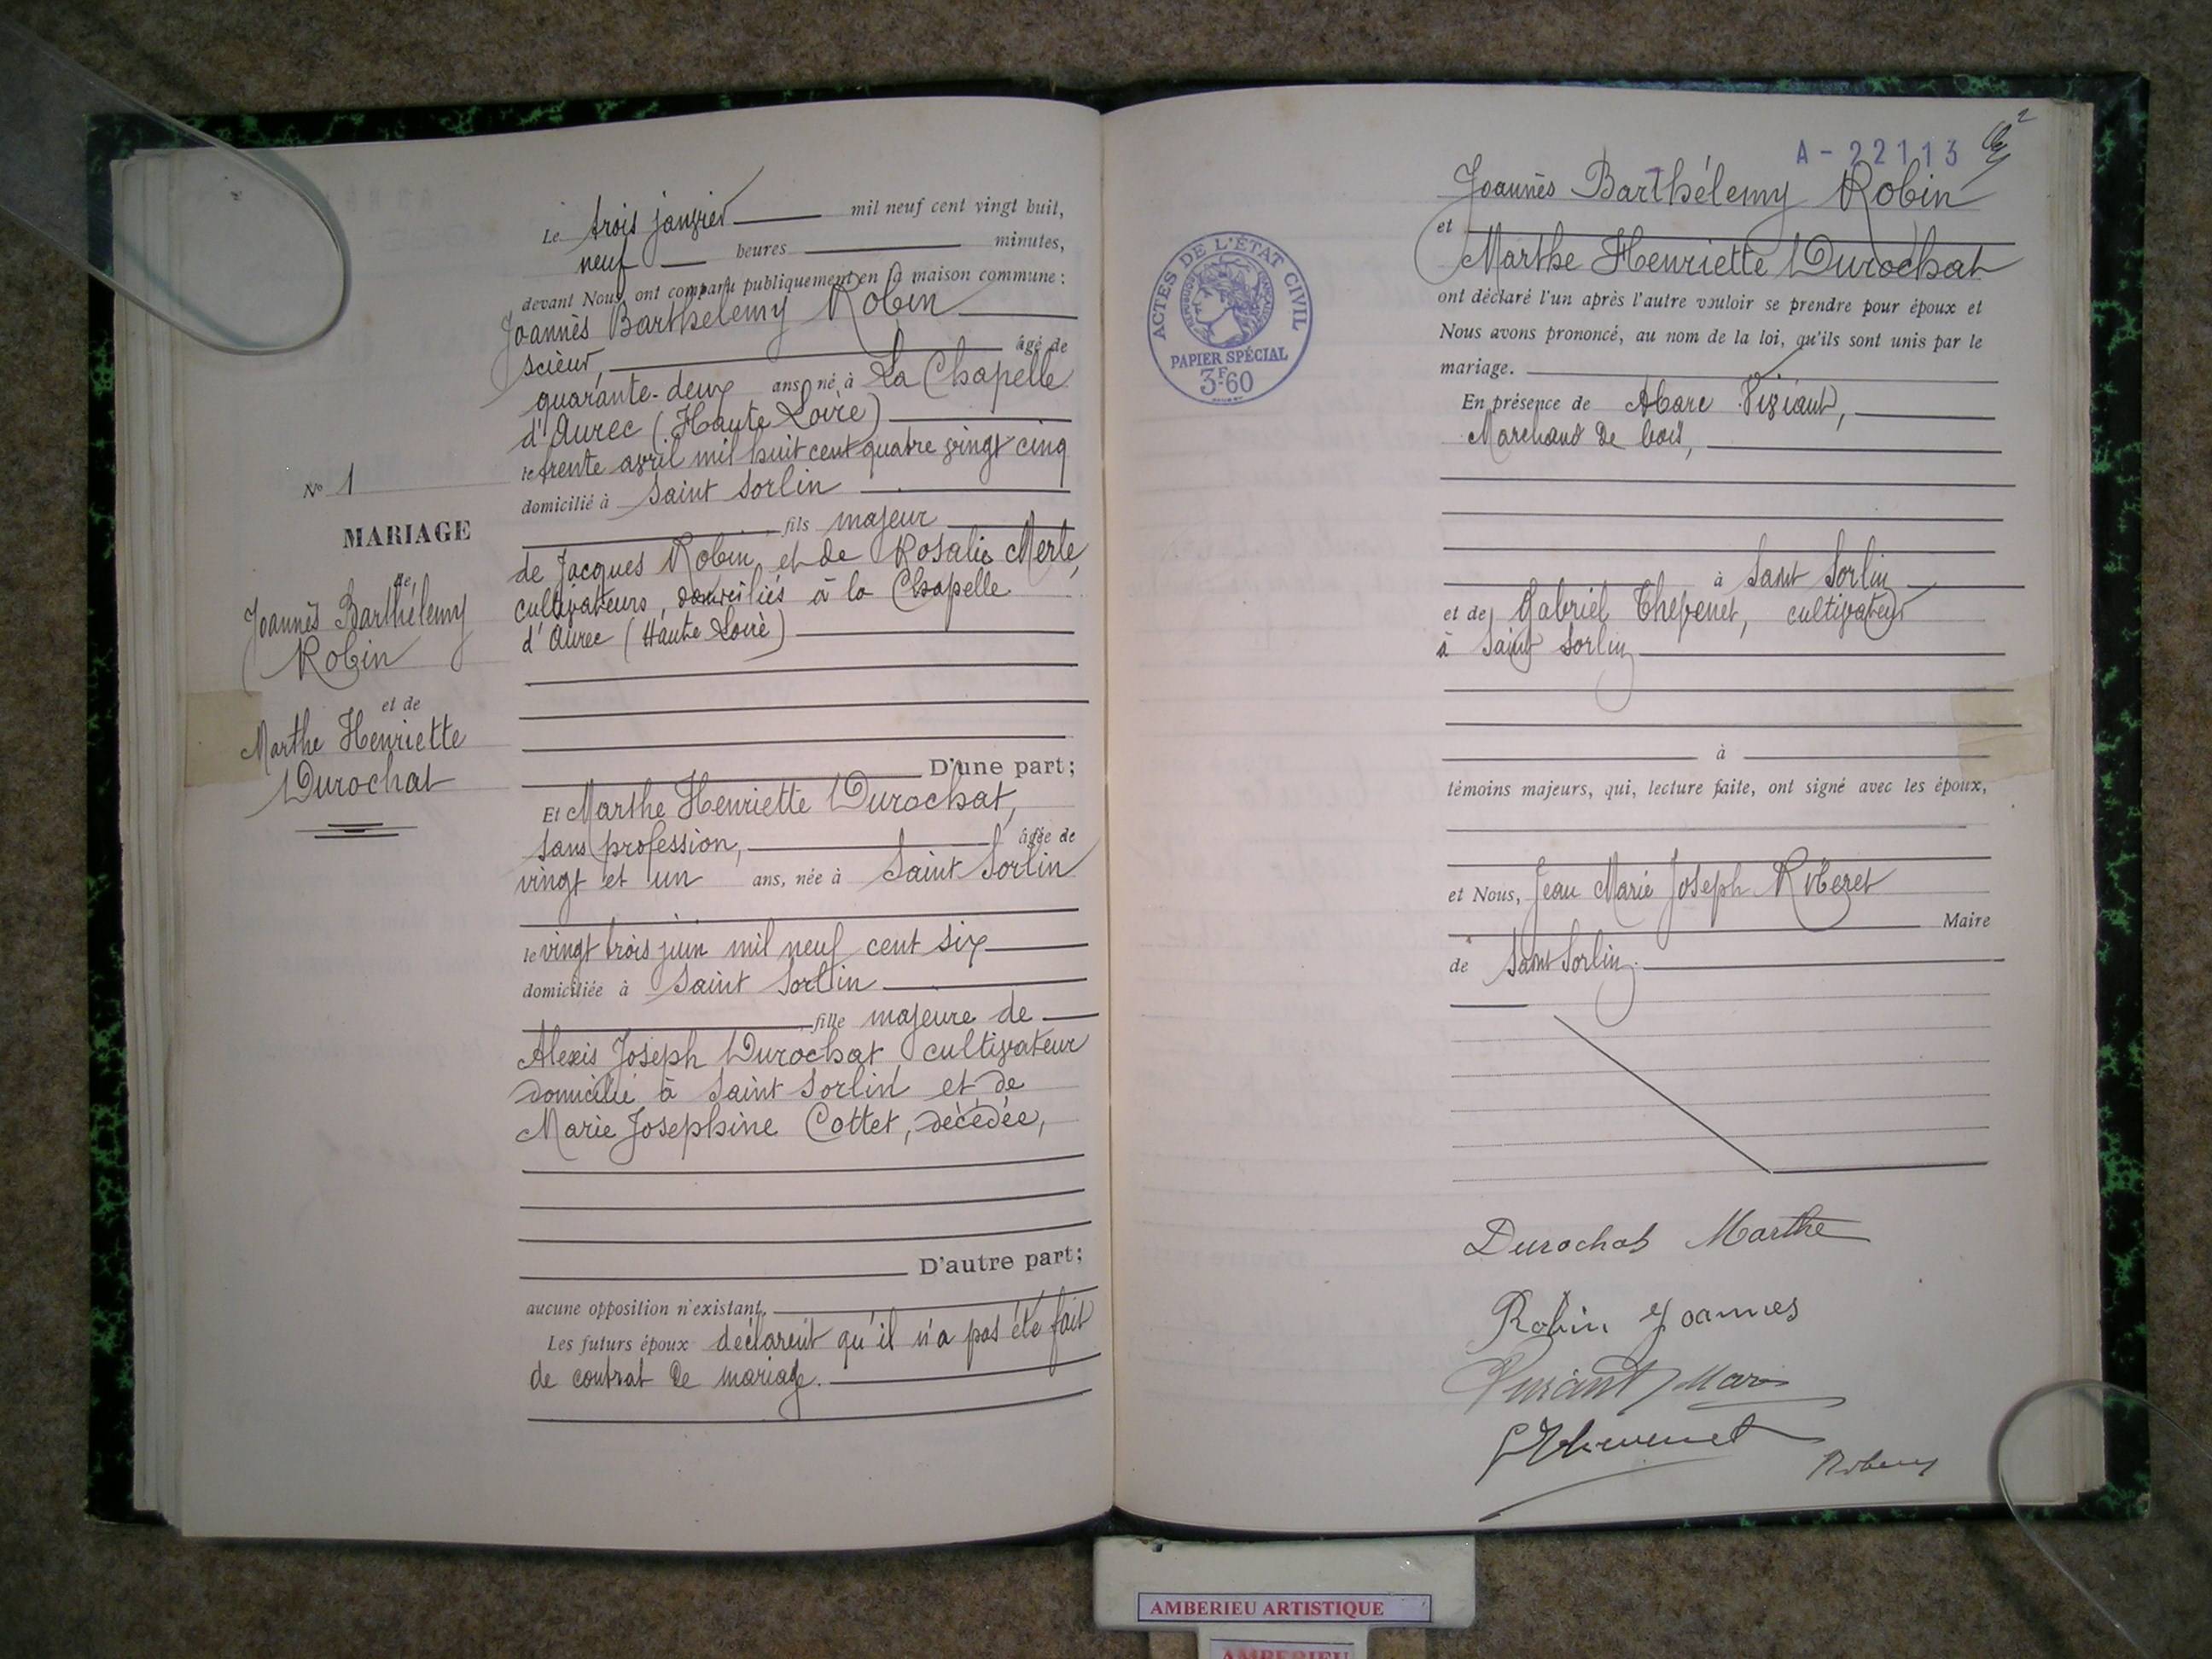 Nº 1
MARIAGE
de
Joannès Barthélemy
Robin
et de
Marthe Henriette
Durochat
Le trois janvier mil neuf cent vingt huit,
neuf heures minutes,
devant Nous ont comparu publiquement en la maison commune :
Joannès Barthélemy Robin
scieur, âgé de
quarante-deux ans, né à La Chapelle
d'Aurec (Haute Loire)
le trente avril mil huit cent quatre vingt cinq
domicilié à Saint Sorlin
fils majeur
de Jacques Robin et de Rosalie Merle,
cultivateurs, domiciliés à la Chapelle
d'Aurec (Haute Loire)
D'une part ;
Et Marthe Henriette Durochat,
sans profession, âgée de
vingt et un ans, née à Saint Sorlin
le vingt trois juin mil neuf cent six
domiciliée à Saint Sorlin
fille majeure de
Alexis Joseph Durochat cultivateur
domicilié à Saint Sorlin et de
Marie Josephine Cottet, décédée,
D'autre part ;
aucune opposition n'existant.
Les futurs époux déclarent qu'il n'a pas été fait
de contrat de mariage.
A - 22113
2
ACTES DE L'ÉTAT CIVIL
PAPIER SPÉCIAL
3F.60
Joannès Barthélemy Robin
et
Marthe Henriette Durochat
ont déclaré l'un après l'autre vouloir se prendre pour époux et
Nous avons prononcé, au nom de la loi, qu'ils sont unis par le
mariage.
En présence de Marc
Marchand de bois,
à Saint Sorlin
et de Gabriel Thevenet, cultivateur
à Saint Sorlin
à
témoins majeurs, qui, lecture faite, ont signé avec les époux,
et Nous, Jean Marie Joseph Riberet
Maire
de Saint Sorlin.
Durochat Marthe
Robin Joannes
Marc
G Thevenet
AMBERIEU ARTISTIQUE
AMBERIEU